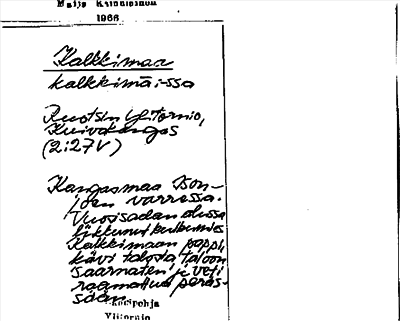 Maija
1966
Kalkkimaa
kalkkimā:ssa
Ruotsin Ylitornio,
Kuivakangas
(2:27V)
Kangasmaa Ison-
joen varressa.
Vuosisadan alussa
liikkunut kulkumies
Kalkkimaan pappi,
kävi talosta taloon
saarnaten, ja veti
raamattua peräs-
sään
pohja
Ylitornio